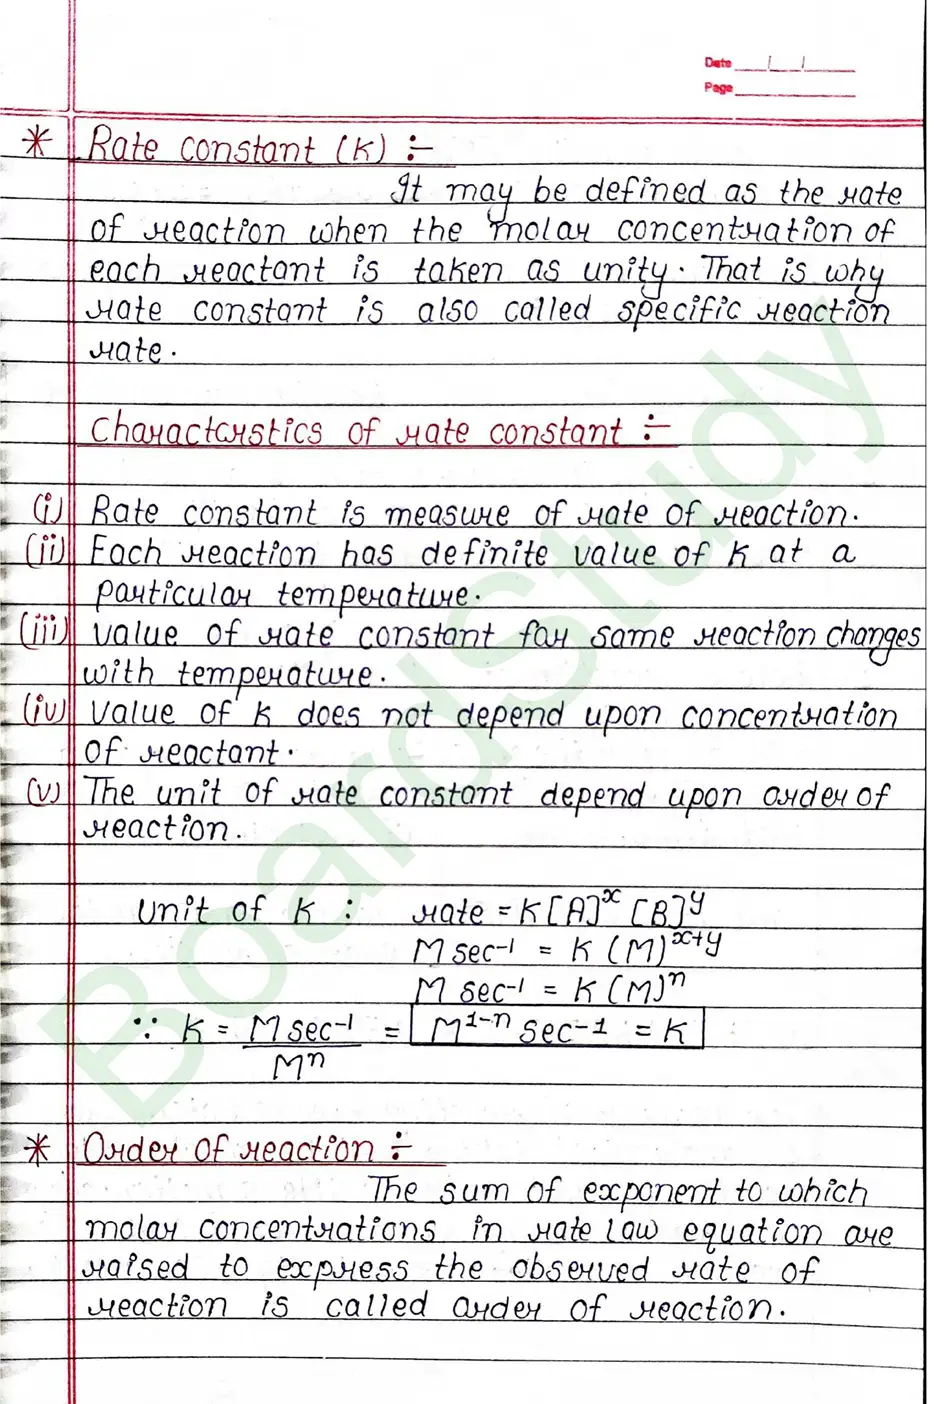 Date ___/___/___
Page ___
* Rate constant (K) :-
It may be defined as the rate
of reaction when the molar concentration of
each reactant is taken as unity. That is why
rate constant is also called specific reaction
rate.
Characterstics of rate constant :-
(i) Rate constant is measure of rate of reaction.
(ii) Each reaction has definite value of K at a
particular temperature.
(iii) value of rate constant for same reaction changes
with temperature.
(iv) Value of K does not depend upon concentration
of reactant.
(v) The unit of rate constant depend upon order of
reaction.
Unit of K : rate = K[A]^x [B]^y
M sec⁻¹ = K (M)^x+y
M sec⁻¹ = K (M)^n
∵ K = M sec⁻¹ / M^n = M^1-n sec⁻¹ = K
* Order of reaction :-
The sum of exponent to which
molar concentrations in rate law equation are
raised to express the observed rate of
reaction is called order of reaction.
BoardStudy